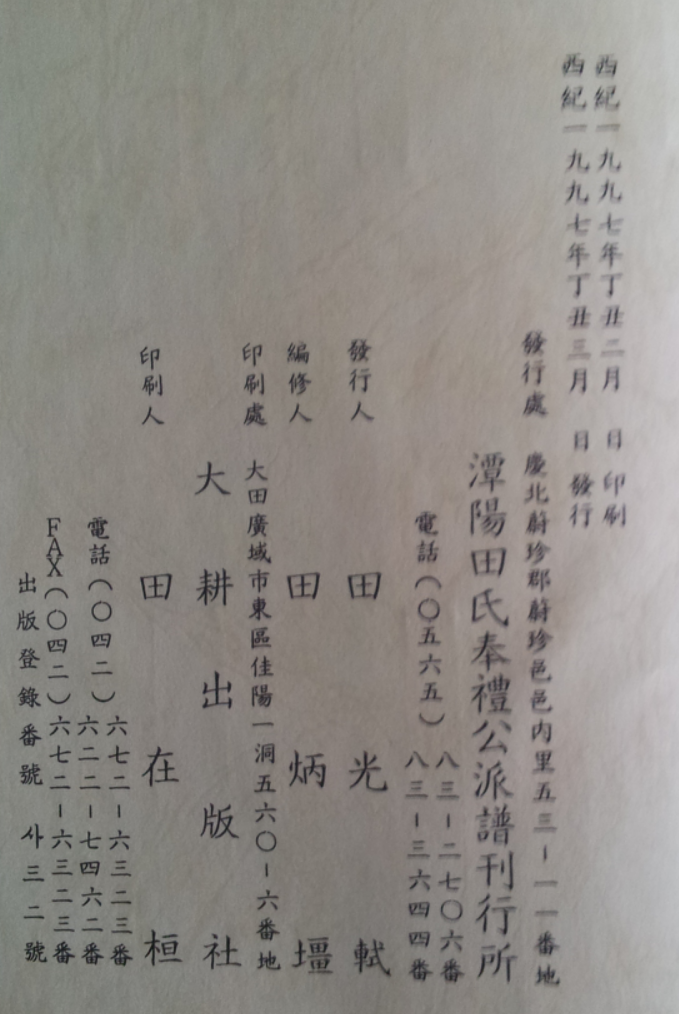 西紀一九九七年丁丑二月 日 印刷
西紀一九九七年丁丑三月 日 發行
發行處 慶北蔚珍郡蔚珍邑邑内里五三-一一番地
潭陽田氏奉禮公派譜刊行所
電話(〇五六五) 八三-二七〇六番
八三-三六四四番
發行人 田光軾
編修人 田炳壃
印刷處 大田廣域市東區佳陽一洞五六〇-六番地
大耕出版社
印刷人 田在桓
電話(〇四二) 六七二-六三二三番
六二二-七四六二番
FAX(〇四二)六七二-六三二三番
出版登錄番號 사三二號